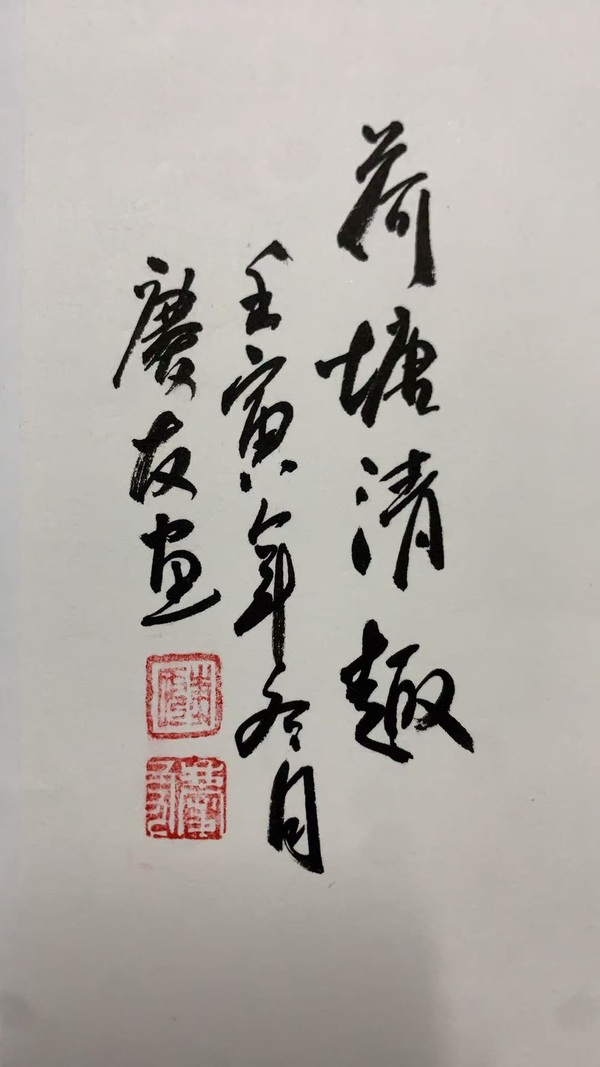 荷塘清趣
壬寅年冬月
庆友画